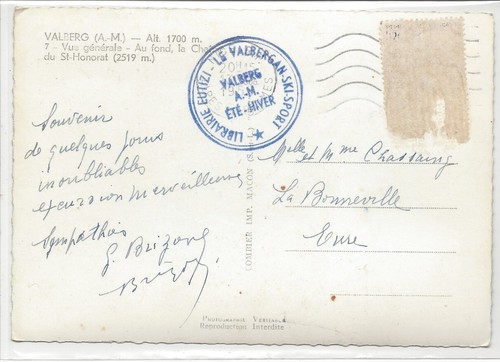 VALBERG (A.-M.) — Alt. 1700 m.
7 - Vue générale - Au fond, la Cha
du St-Honorat (2519 m.)
LIBRAIRIE EUTIZI - LE VALBERGAN-SKI-SPORT
VALBERG
A.-M.
ÉTÉ-HIVER
Souvenir
de quelques jours
inoubliables
excursion merveilleuse
Sympathies
G. Brizard
Melle et Mme Chassaing
La Bonneville
Eure
COMBIER IMP. MACON
Photographie Véritable
Reproduction Interdite